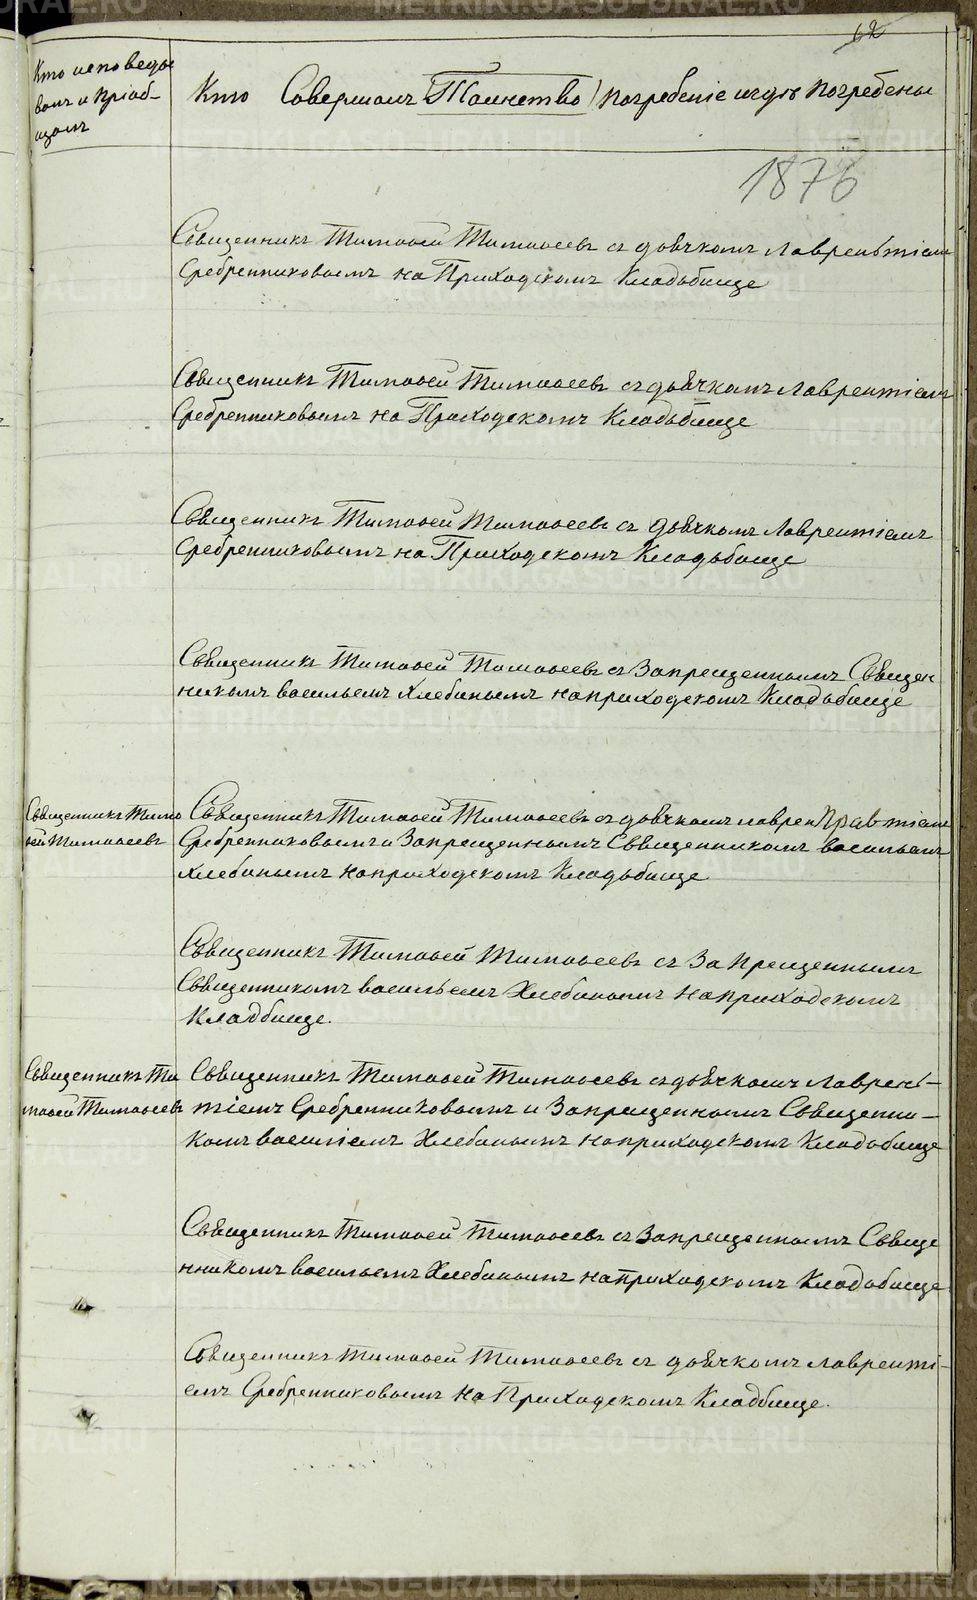 62
Кто исповеды
валъ и пріоб-
щалъ
Кто Совершалъ (Таинство) погребеніе и гдѣ погребены
1876
Священникъ Тимоѳей Тимоѳеевъ съ дьячкомъ Лаврентіемъ
Сребренниковымъ на Приходскомъ Кладьбище
Священникъ Тимоѳей Тимоѳеевъ съ дьячкомъ Лаврентіемъ
Сребренниковымъ на Приходскомъ Кладьбище
Священникъ Тимоѳей Тимоѳеевъ съ дьячкомъ Лаврентіемъ
Сребренниковымъ на Приходскомъ Кладьбище
Священникъ Тимоѳей Тимоѳеевъ съ Запрещеннымъ Священ
никомъ васильемъ Хлебинымъ на приходскомъ Кладьбище
Священникъ Тимо
ѳей Тимоѳеевъ
Священникъ Тимоѳей Тимоѳеевъ съ дьячкомъ лаврентіемъ
Сребренниковымъ и Запрещеннымъ Священникомъ васильемъ
Хлебинымъ на приходскомъ Кладьбище
Священникъ Тимоѳей Тимоѳеевъ съ Запрещеннымъ
Священникомъ васильемъ Хлебинымъ на приходскомъ
Кладбище.
Священникъ Ти
моѳей Тимоѳеевъ
Священникъ Тимоѳей Тимоѳеевъ съ дьячкомъ Лаврень-
тіемъ Сребренниковымъ и Запрещеннымъ Священни-
комъ василіемъ Хлебинымъ на приходскомъ Кладьбище
Священникъ Тимоѳей Тимоѳеевъ съ Запрещеннымъ Свяще
нникомъ васильемъ Хлебинымъ на приходскомъ Кладьбище
Священникъ Тимоѳей Тимоѳеевъ съ дьячкомъ лавренті-
емъ Сребренниковымъ на Приходскомъ Кладбище.
METRIKI.GASO-URAL.RU